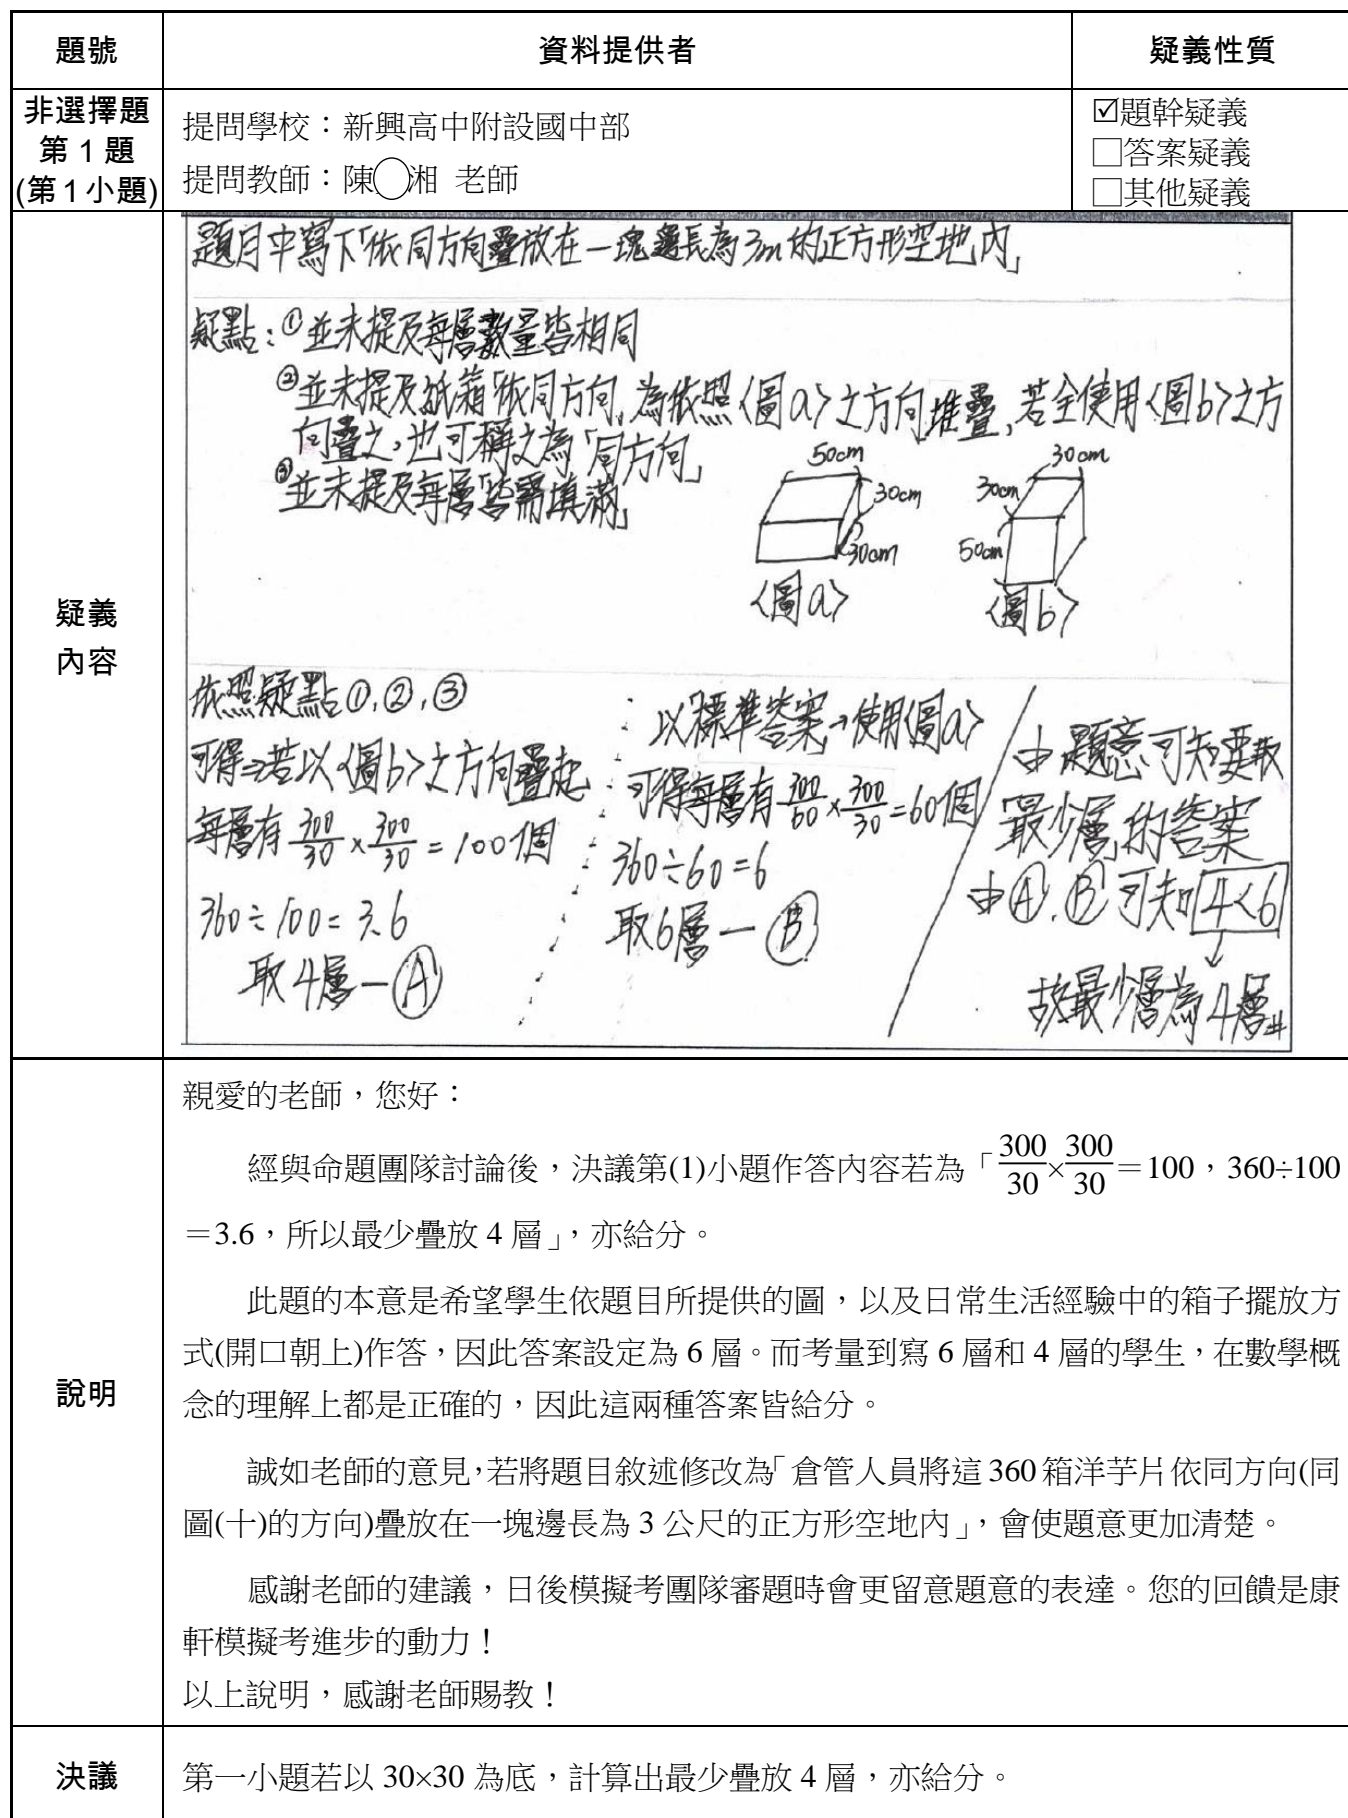 題號
資料提供者
疑義性質
非選擇題
第 1 題
(第1小題)
提問學校：新興高中附設國中部
提問教師：陳◯湘 老師
☑題幹疑義
□答案疑義
□其他疑義
疑義
內容
題目中寫下「依同方向疊放在一塊邊長為3m的正方形空地內」
疑點：①並未提及每層數量皆相同
②並未提及紙箱「依同方向」為依照〈圖a〉之方向堆疊，若全使用〈圖b〉之方
向疊之，也可稱之為「同方向」
③並未提及每層「皆需填滿」
50cm
30cm
30cm
〈圖a〉
30cm
30cm
50cm
〈圖b〉
依照疑點①,②,③
可得⇒若以〈圖b〉之方向疊起
每層有 300/30 × 300/30 = 100個
360÷100=3.6
取4層—Ⓐ
以「標準答案」→使用〈圖a〉
可得每層有 300/60 × 300/30 = 60個
360÷60=6
取6層—Ⓑ
由題意可知要取
「最少層」的答案
由Ⓐ.Ⓑ可知 4<6
↓
故最少層為4層#
說明
親愛的老師，您好：
經與命題團隊討論後，決議第(1)小題作答內容若為「300/30×300/30＝100，360÷100
＝3.6，所以最少疊放 4 層」，亦給分。
此題的本意是希望學生依題目所提供的圖，以及日常生活經驗中的箱子擺放方
式(開口朝上)作答，因此答案設定為 6 層。而考量到寫 6 層和 4 層的學生，在數學概
念的理解上都是正確的，因此這兩種答案皆給分。
誠如老師的意見，若將題目敘述修改為「倉管人員將這 360 箱洋芋片依同方向(同
圖(十)的方向)疊放在一塊邊長為 3 公尺的正方形空地內」，會使題意更加清楚。
感謝老師的建議，日後模擬考團隊審題時會更留意題意的表達。您的回饋是康
軒模擬考進步的動力！
以上說明，感謝老師賜教！
決議
第一小題若以 30×30 為底，計算出最少疊放 4 層，亦給分。